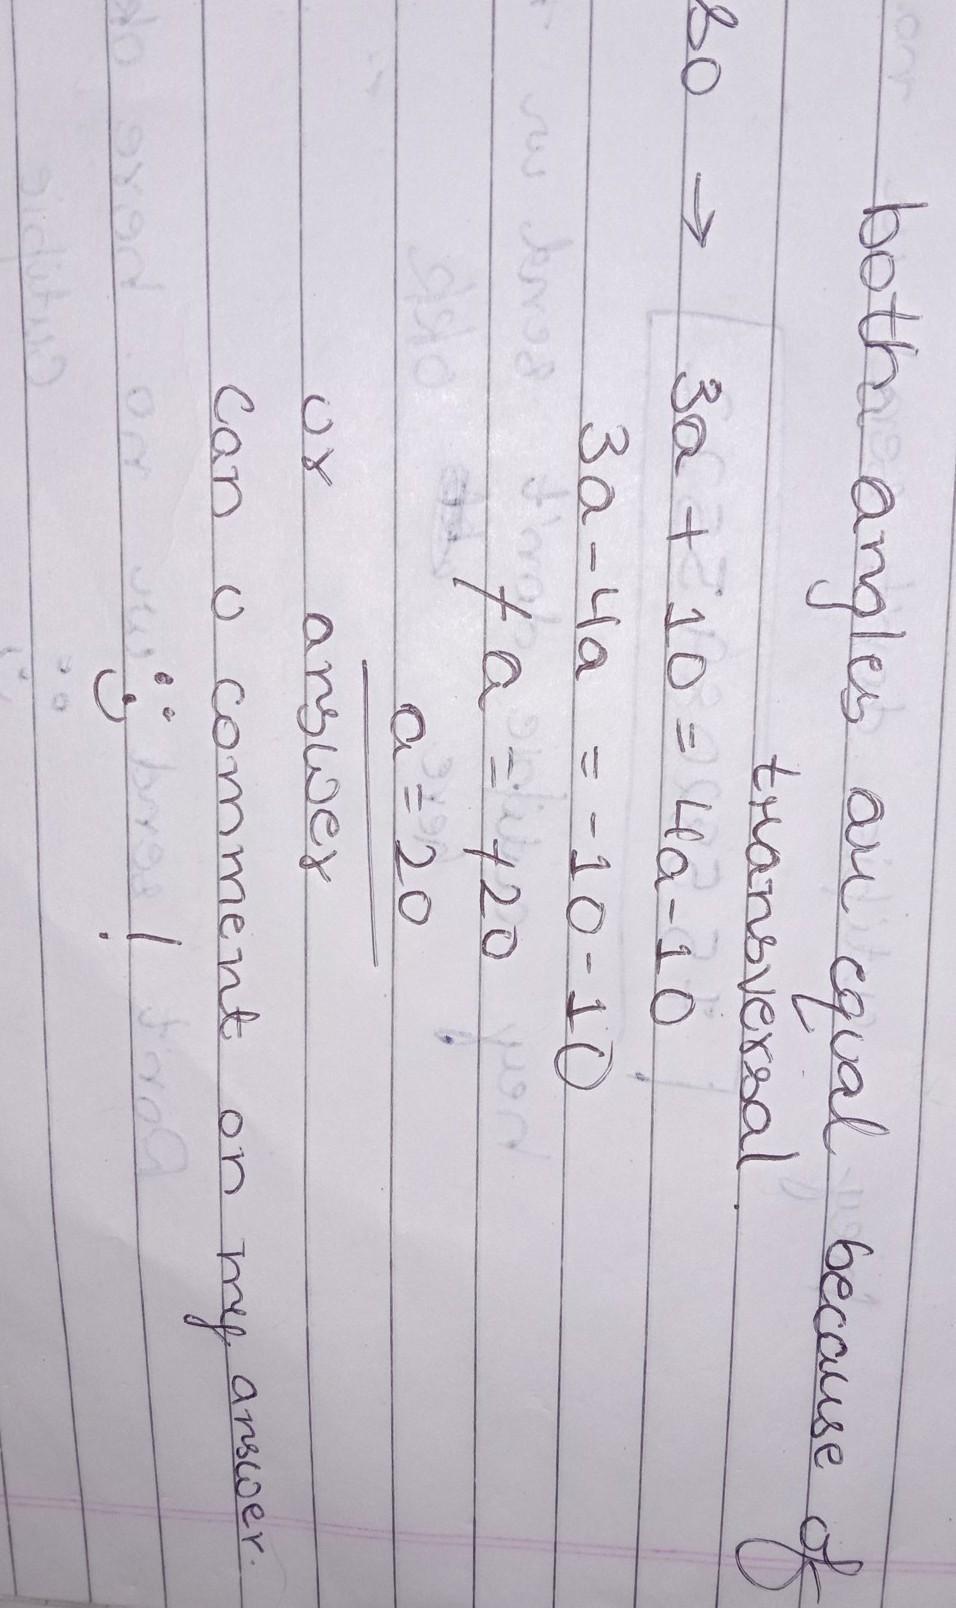 both angles are equal because of
transversal.
so → 3a + 10 = 4a - 10
3a - 4a = -10 - 10
-a = -20
a = 20
ur answer
can u comment on my answer.
!